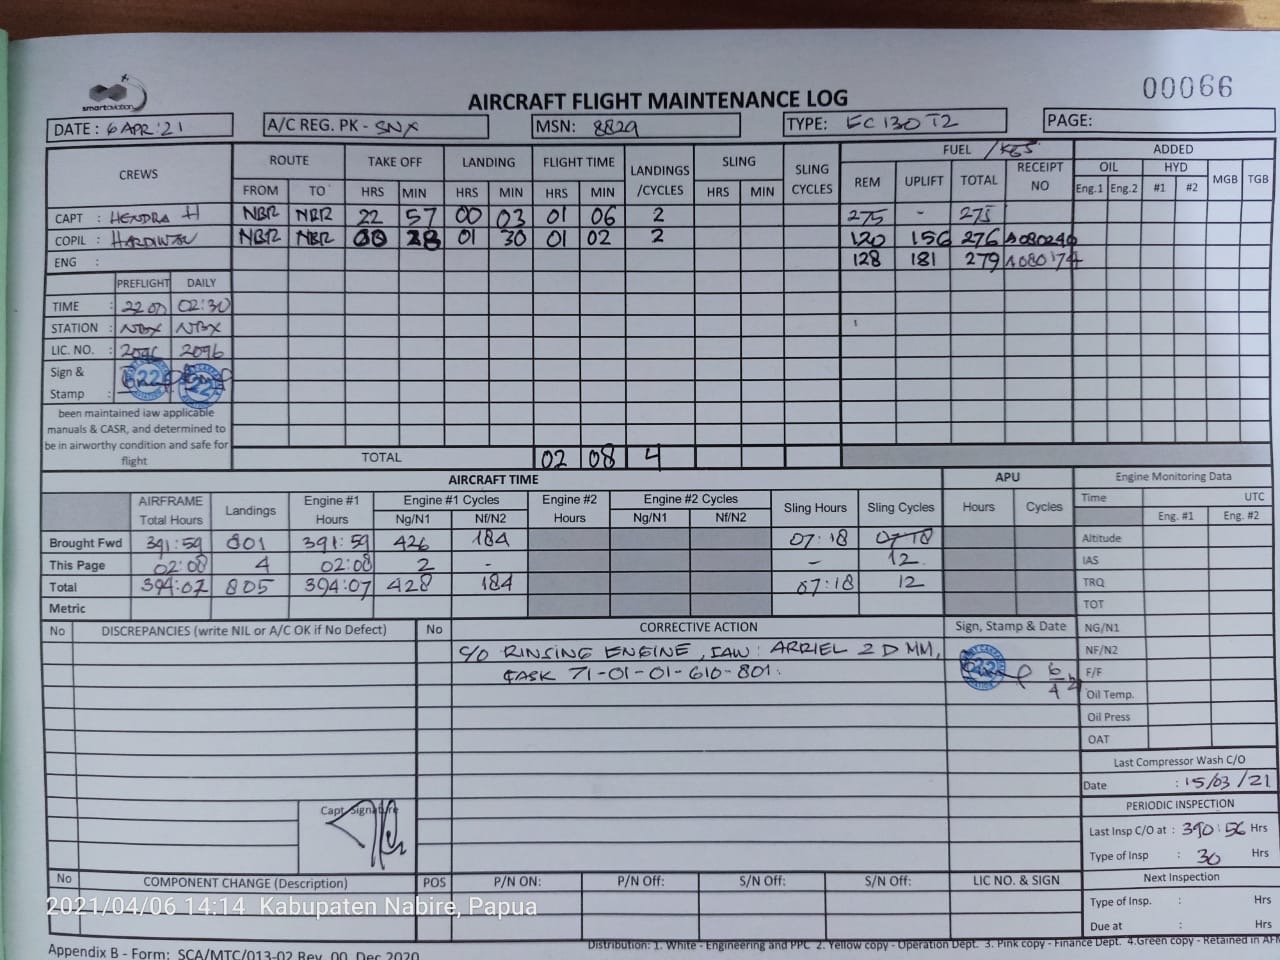 smartaviation
00066
AIRCRAFT FLIGHT MAINTENANCE LOG
DATE : 6 APR '21 A/C REG. PK - SNX MSN: 8829 TYPE: EC 130 T2 PAGE:
CREWS ROUTE TAKE OFF LANDING FLIGHT TIME LANDINGS /CYCLES SLING SLING CYCLES FUEL /KGS ADDED
FROM TO HRS MIN HRS MIN HRS MIN HRS MIN REM UPLIFT TOTAL RECEIPT NO OIL HYD MGB TGB
Eng.1 Eng.2 #1 #2
CAPT : HENDRA H NBR NBR 22 57 00 03 01 06 2 275 - 275
COPIL : HARDIWAN NBR NBR 00 28 01 30 01 02 2 120 156 276
ENG : 128 181 279 A080174
PREFLIGHT DAILY
TIME : 22.00 02:30
STATION : NBX NBX
LIC. NO. : 2096 2096
Sign & Stamp :
22 22
been maintained iaw applicable
manuals & CASR, and determined to
be in airworthy condition and safe for
flight
TOTAL 02 08 4
AIRCRAFT TIME APU Engine Monitoring Data
AIRFRAME Total Hours Landings Engine #1 Hours Engine #1 Cycles Engine #2 Hours Engine #2 Cycles Sling Hours Sling Cycles Hours Cycles Time UTC
Ng/N1 Nf/N2 Ng/N1 Nf/N2 Eng. #1 Eng. #2
Brought Fwd 391:59 801 391:59 426 184 07:18 07:18 Altitude
This Page 02:08 4 02:08 2 - - 12 IAS
Total 394:07 805 394:07 428 184 07:18 12 TRQ
Metric TOT
No DISCREPANCIES (write NIL or A/C OK if No Defect) No CORRECTIVE ACTION Sign, Stamp & Date NG/N1
C/O RINSING ENGINE, IAW: ARRIEL 2 D MM, NF/N2
TASK 71-01-01-610-801. 22 6/4 21 F/F
Oil Temp.
Oil Press
OAT
Last Compressor Wash C/O
Date : 15/03/21
PERIODIC INSPECTION
Capt. Signature
Last Insp C/O at : 390:56 Hrs
Type of Insp : 30 Hrs
Next Inspection
No COMPONENT CHANGE (Description) POS P/N ON: P/N Off: S/N Off: S/N Off: LIC NO. & SIGN
Type of Insp. : Hrs
2021/04/06 14:14 Kabupaten Nabire, Papua
Due at : Hrs
Distribution: 1. White - Engineering and PPC 2. Yellow copy - Operation Dept. 3. Pink copy - Finance Dept. 4.Green copy - Retained in AFM
Appendix B - Form: SCA/MTC/013-02 Rev. 00, Dec 2020